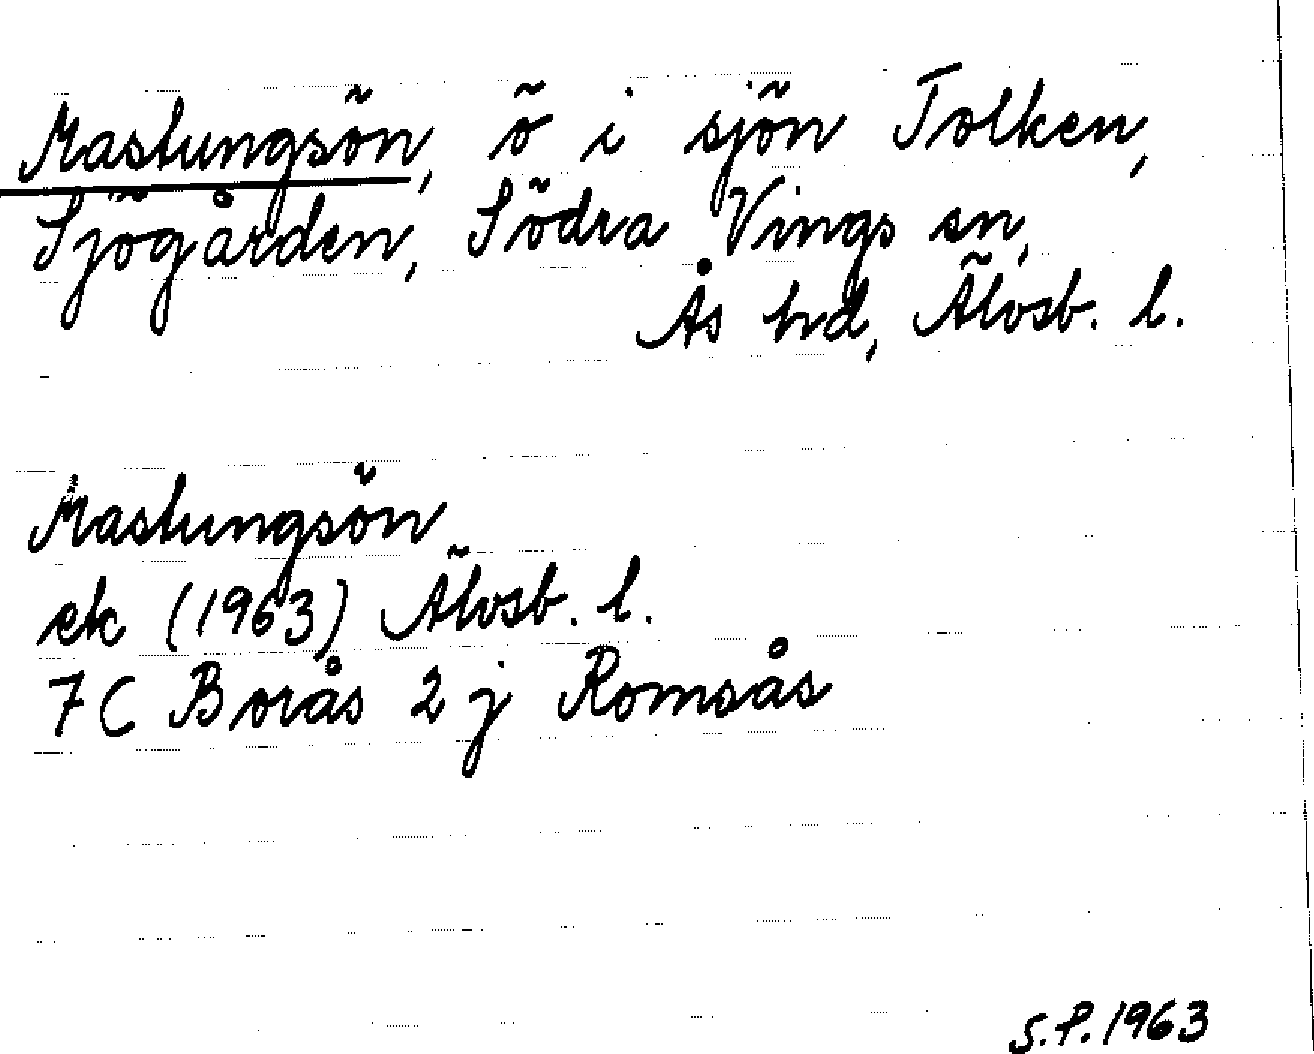 Maslungsön, ö i sjön Tolken,
Sjögården, Södra Vings sn,
Ås hd, Älvsb. l.
Maslungsön
ek (1963) Älvsb. l.
7C Borås 2 j Romsås
S.P. 1963